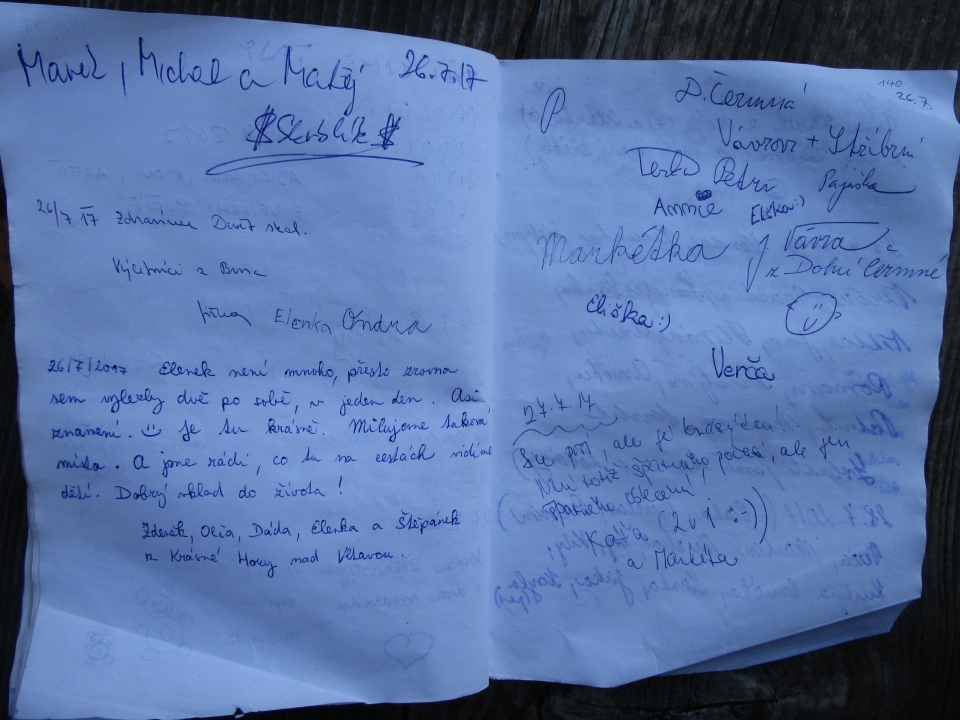 Marek, Michal a Matěj 26.7.17
$Skrblík$
26/7 17 Zdravíme Devět skal.
Výletníci z Brna
Jirka Elenka Ondra
26/7/2017 Elenek není mnoho, přesto zrovna
sem vylezly dvě po sobě, v jeden den. Asi
znamení. Je tu krásně. Milujeme taková
místa. A jsme rádi, co tu na cestách vidíme
dětí. Dobrý vklad do života!
Zdeněk, Dáda, Elenka a Štěpánek
z Krásné Hory nad Vltavou.
140
26.7.
P D. Čermná
Vávrovi + Stříbrní
Petr Pájička
Annie Eliška:)
Markétka J. Vávra
z Dolní Čermné
Eliška:)
Verča
27.7.17
Sice prší, ale je tu
Není totiž špatného počasí, ale jen
špatného oblečení
Kája (2 v 1 :-))
a Markéta